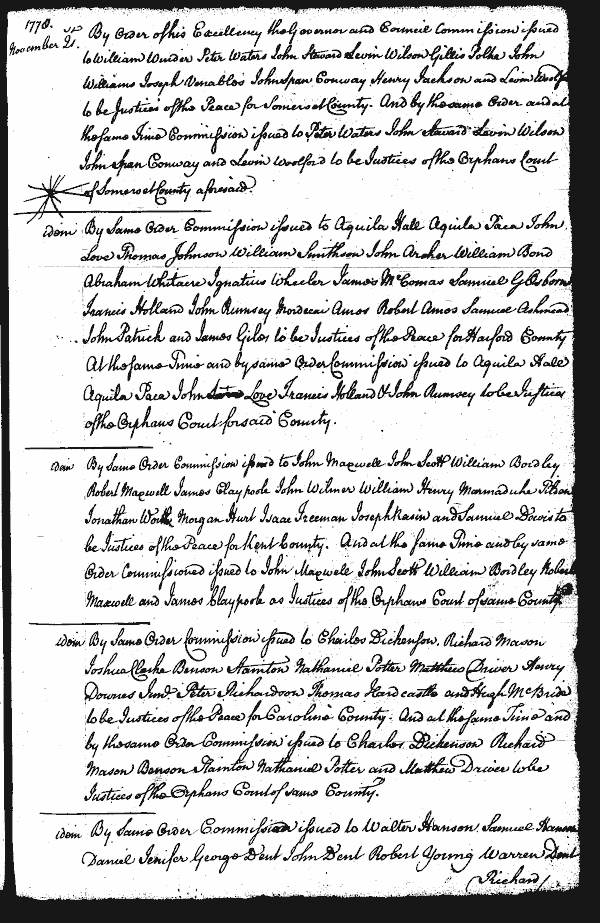 1778.
November 21st.
By Order of his Excellency the Governor and Council Commission issued
to William Winder Peter Waters John Steward Levin Wilson Gillis Polke John
Williams Joseph Venables John Span Conway Henry Jackson and Levin Woolford
to be Justices of the Peace for Somerset County. And by the same Order and at
the same Time Commission issued to Peter Waters John Steward Levin Wilson
John Span Conway and Levin Woolford to be Justices of the Orphans Court
of Somerset County aforesaid.
idem By Same Order Commission issued to Aquila Hall Aquila Paca John
Love Thomas Johnson William Smithson John Archer William Bond
Abraham Whitacre Ignatius Wheeler James McComas Samuel G. Osborn
Francis Holland John Rumsey Mordecai Amos Robert Amos Samuel Ashmead
John Patrick and James Giles to be Justices of the Peace for Harford County
At the same Time and by same Order Commission issued to Aquila Hall
Aquila Paca John Love Francis Holland & John Rumsey to be Justices
of the Orphans Court for said County.
dem By Same Order Commission issued to John Maxwell John Scott William Bordley
Robert Maxwell James Claypoole John Wilmer William Henry Marmaduke Tilden
Jonathan Worth Morgan Hurt Isaac Freeman Joseph Rasin and Samuel Davis to
be Justices of the Peace for Kent County. And at the same Time and by same
Order Commissioned issued to John Maxwell John Scott William Bordley Robert
Maxwell and James Claypoole as Justices of the Orphans Court of same County.
idem By Same Order Commission issued to Charles Dickenson, Richard Mason
Joshua Clarke Benson Stainton Nathaniel Potter Matthew Driver Henry
Downes Junr. Peter Richardson Thomas Hardcastle and Hugh McBride
to be Justices of the Peace for Caroline County. And at the same Time and
by the same Order Commission issued to Charles Dickenson Richard
Mason Benson Stainton Nathaniel Potter and Matthew Driver to be
Justices of the Orphans Court of same County.
idem By Same Order Commission issued to Walter Hanson, Samuel Hanson
Daniel Jenifer George Dent John Dent Robert Young Warren Dent
Richard